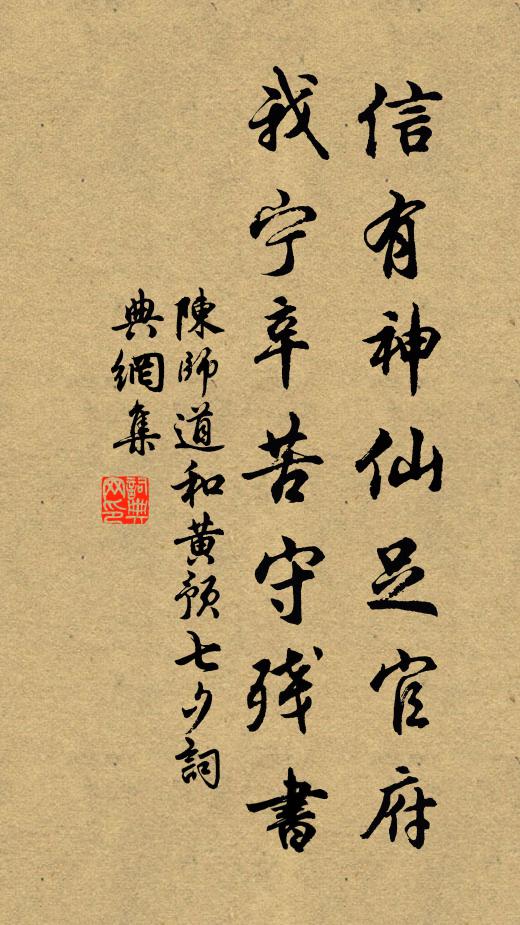 信有神仙足官府
我宁辛苦守残書
陳師道和黄預七夕詞
典網集
詞典網印